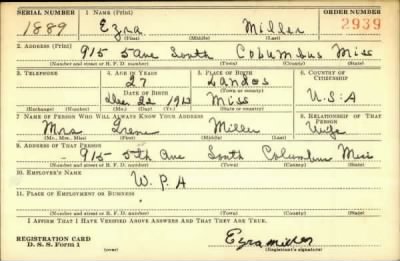 SERIAL NUMBER 1. NAME (Print) ORDER NUMBER
1889 Ezra Miller 2939
(First) (Middle) (Last)
2. ADDRESS (Print)
915 5 ave South Columbus Miss
(Number and street or R. F. D. number) (Town) (County) (State)
3. TELEPHONE 4. AGE IN YEARS 5. PLACE OF BIRTH 6. COUNTRY OF CITIZENSHIP
27
DATE OF BIRTH (Town or county)
Dec 22 1912 Miss U.S.A
(Exchange) (Number) (Mo.) (Day) (Yr.) (State or country)
7. NAME OF PERSON WHO WILL ALWAYS KNOW YOUR ADDRESS 8. RELATIONSHIP OF THAT PERSON
Mrs Irene Miller Wife
(Mr., Mrs., Miss) (First) (Middle) (Last)
9. ADDRESS OF THAT PERSON
915 5th ave South Columbus Miss
(Number and street or R. F. D. number) (Town) (County) (State)
10. EMPLOYER'S NAME
W. P. A
11. PLACE OF EMPLOYMENT OR BUSINESS
(Number and street or R. F. D. number) (Town) (County) (State)
I AFFIRM THAT I HAVE VERIFIED ABOVE ANSWERS AND THAT THEY ARE TRUE.
REGISTRATION CARD
D. S. S. Form 1 (over) Ezra Miller
(Registrant's signature)